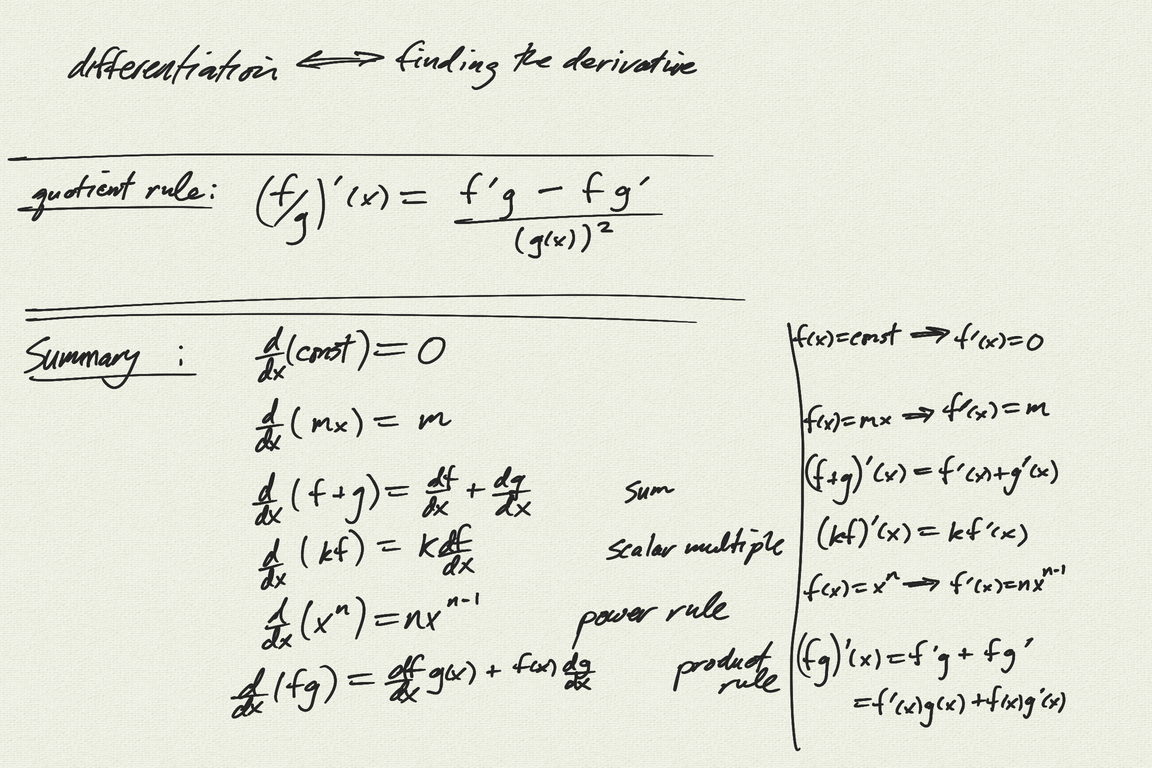 differentiation ⟺ finding the derivative
quotient rule: (f/g)'(x) = (f'g - fg') / (g(x))²
Summary :
d/dx (const) = 0
d/dx (mx) = m
d/dx (f+g) = df/dx + dg/dx sum
d/dx (kf) = k df/dx scalar multiple
d/dx (xⁿ) = nxⁿ⁻¹ power rule
d/dx (fg) = df/dx g(x) + f(x) dg/dx product rule
f(x)=const ⟹ f'(x)=0
f(x)=mx ⟹ f'(x)=m
(f+g)'(x) = f'(x)+g'(x)
(kf)'(x) = kf'(x)
f(x)=xⁿ ⟹ f'(x)=nxⁿ⁻¹
(fg)'(x) = f'g + fg'
=f'(x)g(x)+f(x)g'(x)